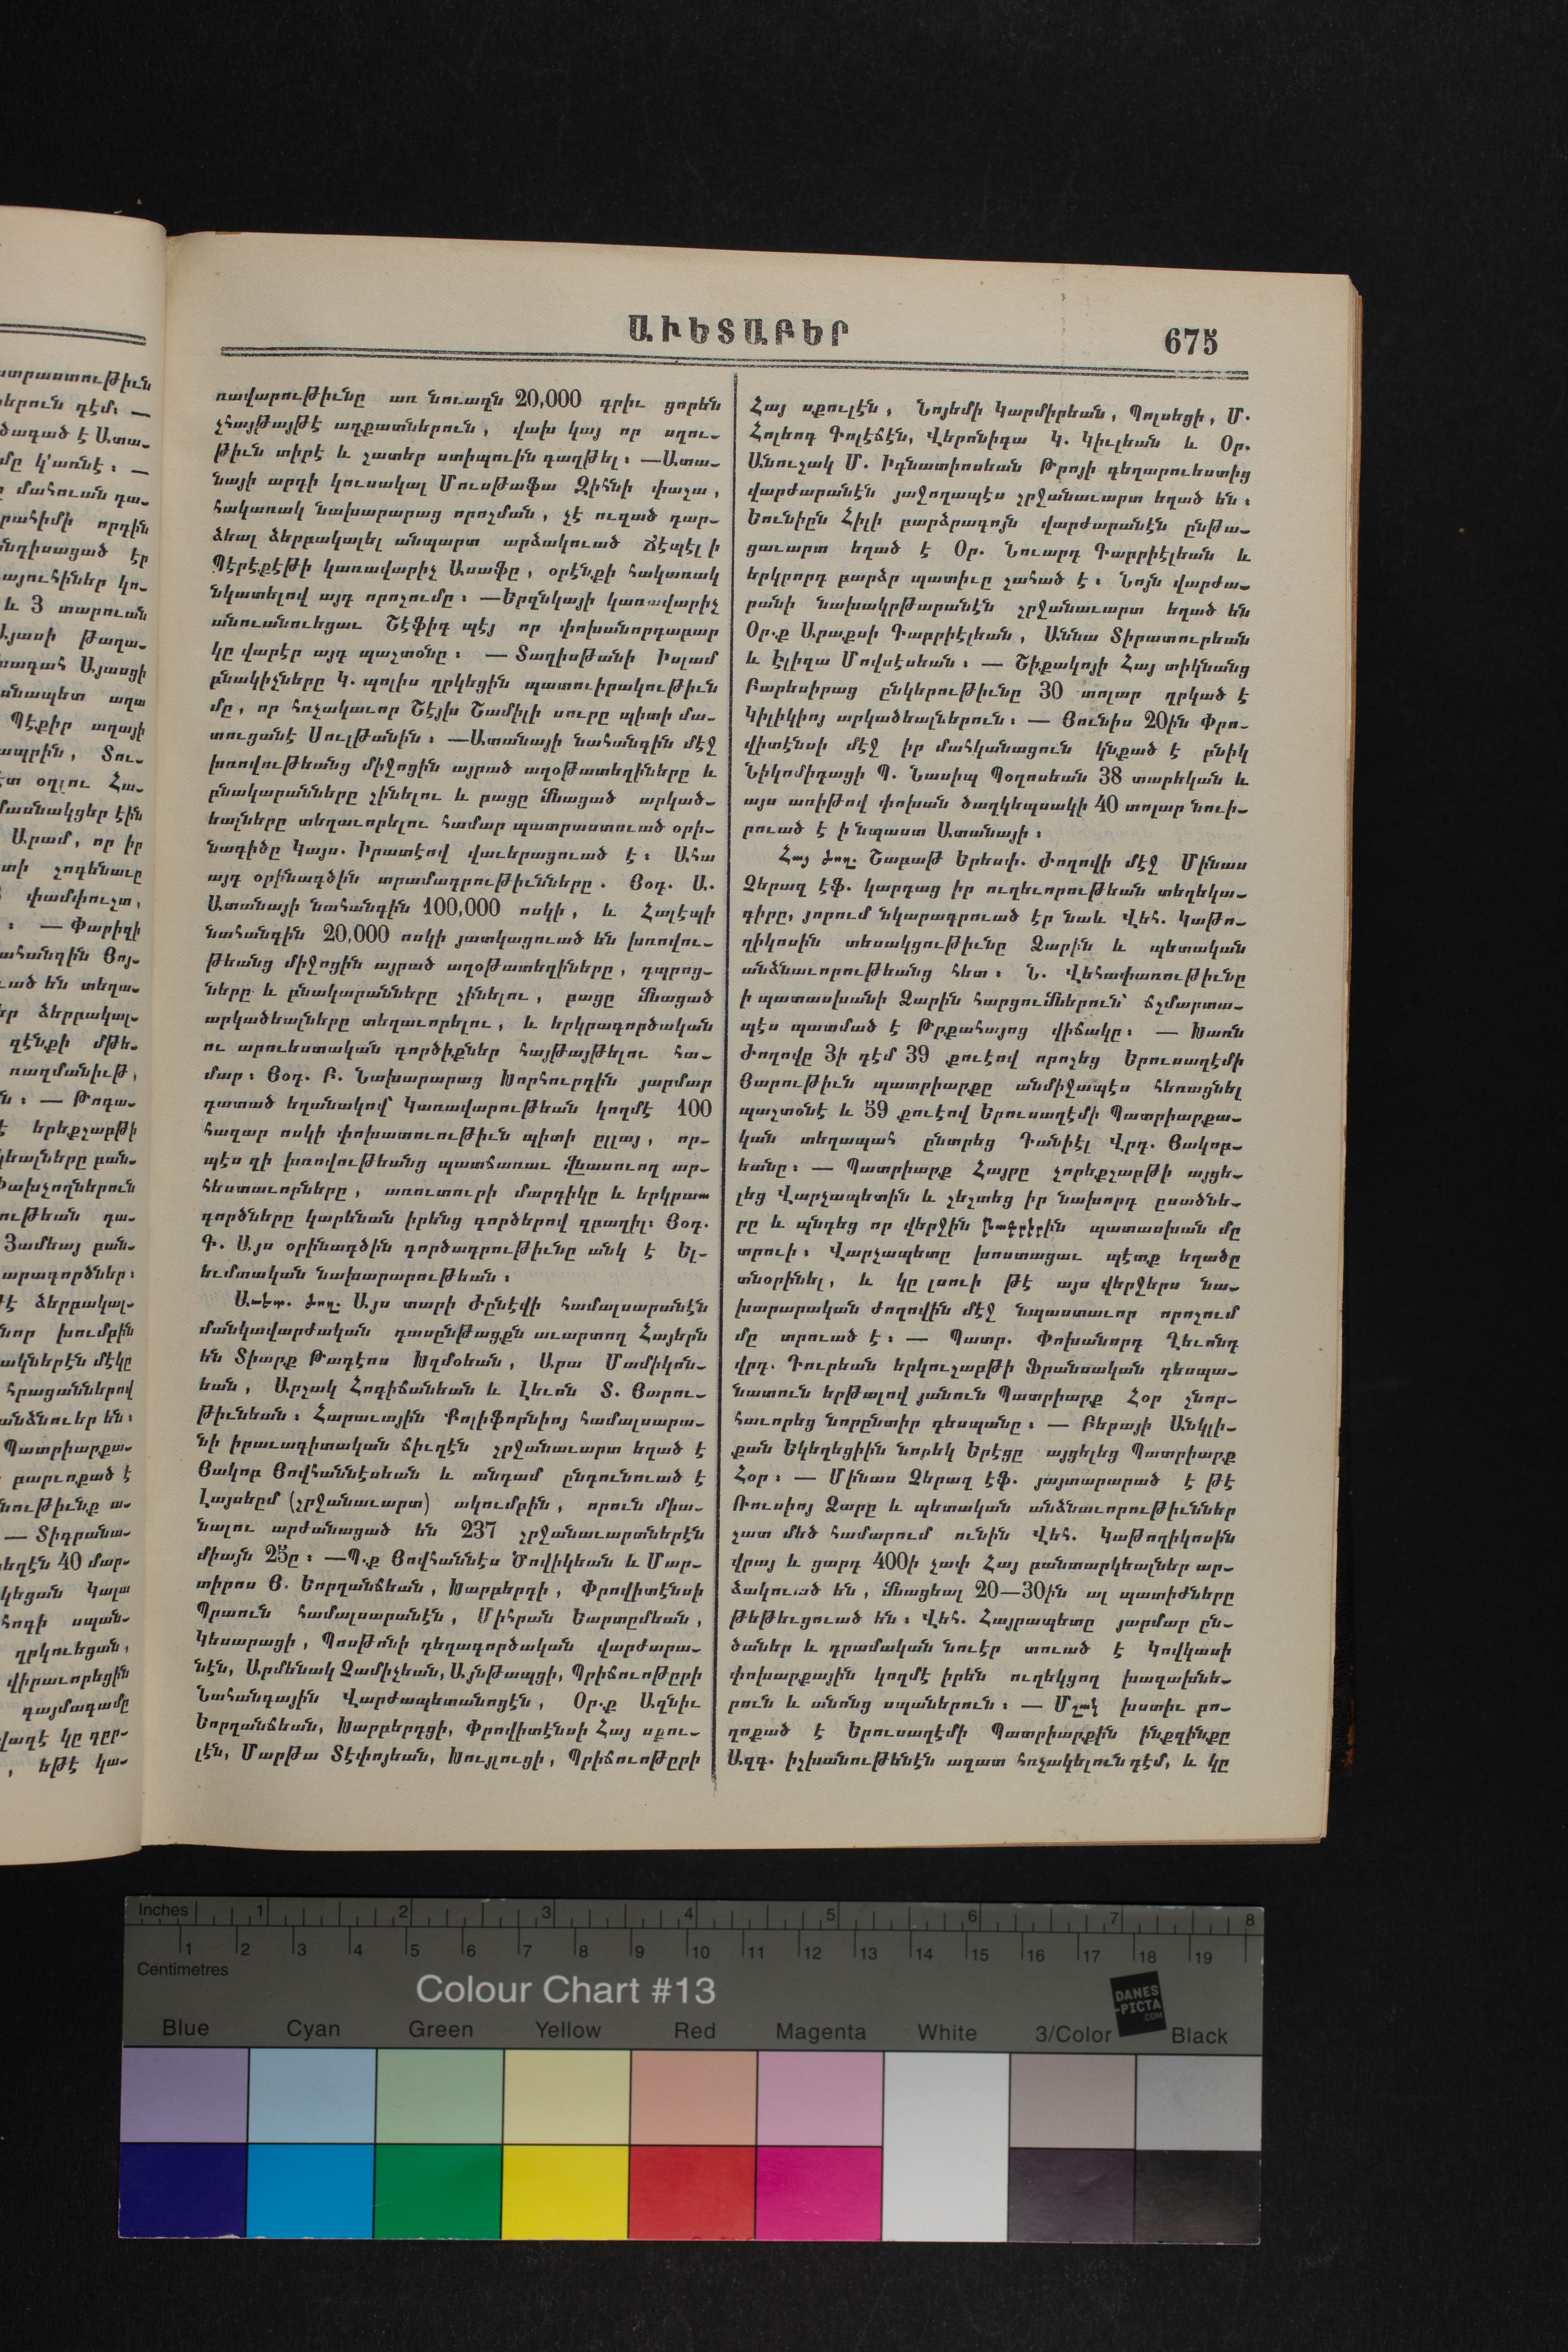 ԱՒԵՏԱԲԵՐ
675
ռավարութիւնը առ նուազն 20,000 գրիւ ցորեն
չհայթայթէ աղքատներուն, վախ կայ որ սղու-
թիւն տիրէ և շատեր ստիպուին գաղթել։ —Ատա-
նայի արդի կուսակալ Մուսթաֆա Զիհնի փաշա,
հակառակ նախարարաց որոշման, չէ ուզած դար-
ձեալ ձերբակալել անպարտ արձակուած Ճէպէլ ի
Պէրէքէթի կառավարիչ Ասաֆը, օրէնքի հակառակ
նկատելով այդ որոշումը։ —Երզնկայի կառավարիչ
անուանուեցաւ Շէֆիգ պէյ որ փոխանորդաբար
կը վարէր այդ պաշտօնը։ — Տաղիսթանի Իսլամ
բնակիչները Կ. պոլիս ղրկեցին պատուիրակութիւն
մը, որ հռչակաւոր Շէյխ Շամիլի սուրը պիտի մա-
տուցանէ Սուլթանին։ —Ատանայի նահանգին մէջ
խռովութեանց միջոցին այրած աղօթատեղիները և
բնակարանները շինելու և բացը մնացած արկած-
եալները տեղաւորելու համար պատրաստուած օրի-
նագիծը Կայս. Իրատէով վաւերացուած է։ Ահա
այդ օրինագծին տրամադրութիւնները. Յօդ. Ա.
Ատանայի նահանգին 100,000 ոսկի, և Հալէպի
նահանգին 20,000 ոսկի յատկացուած են խռովու-
թեանց միջոցին այրած աղօթատեղիները, դպրոց-
ները և բնակարանները շինելու, բացը մնացած
արկածեալները տեղաւորելու, և երկրագործական
ու արուեստական գործիքներ հայթայթելու հա-
մար։ Յօդ. Բ. Նախարարաց Խորհուրդին յարմար
դատած եղանակով՝ Կառավարութեան կողմէ 100
հազար ոսկի փոխատուութիւն պիտի ըլլայ, որ-
պէս զի խռովութեանց պատճառաւ վնասուող ար-
հեստաւորները, առուտուրի մարդիկը և երկրա-
գործները կարենան իրենց գործերով զբաղիլ։ Յօդ.
Գ. Այս օրինագծին գործադրութիւնը անկ է Ել-
եւմտական նախարարութեան։
Աւետ. Ժող. Այս տարի Ժընէվի համալսարանէն
մանկավարժական դասընթացքն աւարտող Հայերն
են Տիարք Թադէոս Խզմօեան, Արա Մամիկոն-
եան, Արշակ Հոգիճանեան և Լեւոն Տ. Յարու-
թիւնեան։ Հարաւային Քոլիֆորնիոյ համալսարա-
նի իրաւագիտական ճիւղէն շրջանաւարտ եղած է
Յակոբ Յովհաննէսեան և անդամ ընդունուած է
Լայսեըմ (շրջանաւարտ) ակումբին, որուն միա-
նալու արժանացած են 237 շրջանաւարտներէն
միայն 25ը։ —Պ.ք Յովհաննէս Ծովիկեան և Մար-
տիրոս Յ. Եորղանճեան, Խարբերդի, Փրովիտէնսի
Պրաուն համալսարանէն, Միհրան Եարտըմեան,
Կեսարացի, Պոսթոնի դեղագործական վարժարա-
նէն, Արմենակ Չամիչեան, Այնթապցի, Պրիճուոթըրի
Նահանգային Վարժապետանոցէն, Օր.ք Ազնիւ
Եորղանճեան, Խարբերդցի, Փրովիտէնսի Հայ սքու-
լէն, Մարթա Տէփոյեան, Խույլուցի, Պրիճուոթըրի
Հայ սքուլէն, Նոյեմի Կարմիրեան, Պոլսեցի, Մ.
Հոլեոգ Գոլէճէն, Վերոնիգա Կ. Կիւլեան և Օր.
Անուշակ Մ. Իգնատիոսեան Թրոյի գեղարուեստից
վարժարանէն յաջողապէս շրջանաւարտ եղած են։
Եունիըն Հիլի բարձրագոյն վարժարանէն ընթա-
ցաւարտ եղած է Օր. Նուարդ Գաբրիէլեան և
երկրորդ բարձր պատիւը շահած է։ Նոյն վարժա-
րանի նախակրթարանէն շրջանաւարտ եղած են
Օր.ք Արաքսի Գաբրիէլեան, Աննա Տիրատուրեան
և Էլիզա Մովսէսեան։ — Շիքակոյի Հայ տիկնանց
Բարեսիրաց ընկերութիւնը 30 տոլար ղրկած է
Կիլիկիոյ արկածեալներուն։ — Յունիս 20ին Փրո-
վիտէնսի մէջ իր մահկանացուն կնքած է բնիկ
Նիկոմիդացի Պ. Նասիպ Պօղոսեան 38 տարեկան և
այս առիթով փոխան ծաղկեպսակի 40 տոլար նուի-
րուած է ի նպաստ Ատանայի։
Հայ Ժող. Շաբաթ Երեսփ. Ժողովի մէջ Մինաս
Չերազ էֆ. կարդաց իր ուղեւորութեան տեղեկա-
գիրը, յորում նկարագրուած էր նաև Վեհ. Կաթո-
ղիկոսին տեսակցութիւնը Ձարին և պետական
անձնաւորութեանց հետ։ Ն. Վեհափառութիւնը
ի պատասխանի Ձարին հարցումներուն՝ ճշմարտա-
պէս պատմած է Թրքահայոց վիճակը։ — Խառն
Ժողովը 3ի դէմ 39 քուէով որոշեց Երուսաղէմի
Յարութիւն պատրիարքը անմիջապէս հեռացնել
պաշտօնէ և 59 քուէով Երուսաղէմի Պատրիարքա-
կան տեղապահ ընտրեց Դանիէլ Վրդ. Յակոբ-
եանը։ — Պատրիարք Հայրը չորեքշաբթի այցե-
լեց Վարչապետին և շեշտեց իր նախորդ ըսածնե-
րը և պնդեց որ վերջին թագրիրին պատասխան մը
տրուի։ Վարչապետը խոստացաւ պէտք եղածը
տնօրինել, և կը լսուի թէ այս վերջերս նա-
խարարական ժողովին մէջ նպաստաւոր որոշում
մը տրուած է։ — Պատր. Փոխանորդ Ղեւոնդ
վրդ. Դուրեան երկուշաբթի Ֆրանսական դեսպա-
նատուն երթալով յանուն Պատրիարք Հօր շնոր-
հաւորեց նորընտիր դեսպանը։ — Բերայի Անկլի-
քան Եկեղեցիին նորեկ Երէցը այցելեց Պատրիարք
Հօր։ — Մինաս Չերազ էֆ. յայտարարած է թէ
Ռուսիոյ Ձարը և պետական անձնաւորութիւններ
շատ մեծ համարում ունին Վեհ. Կաթողիկոսին
վրայ և ցարդ 400ի չափ Հայ բանտարկեալներ ար-
ձակուած են, մնացեալ 20—30ին ալ պատիժները
թեթեւցուած են։ Վեհ. Հայրապետը յարմար ըն-
ծաներ և դրամական նուէր տուած է Կովկասի
փոխարքային կողմէ իրեն ուղեկցող խազախնե-
րուն և անոնց սպաներուն։ — Մշակ խստիւ բո-
ղոքած է Երուսաղէմի Պատրիարքին ինքզինքը
Ազգ. իշխանութենէն ազատ հռչակելուն դէմ, և կը
Inches 1 2 3 4 5 6 7 8
1 2 3 4 5 6 7 8 9 10 11 12 13 14 15 16 17 18 19
Centimetres
Colour Chart #13
DANES
-PICTA
.COM
Blue Cyan Green Yellow Red Magenta White 3/Color Black